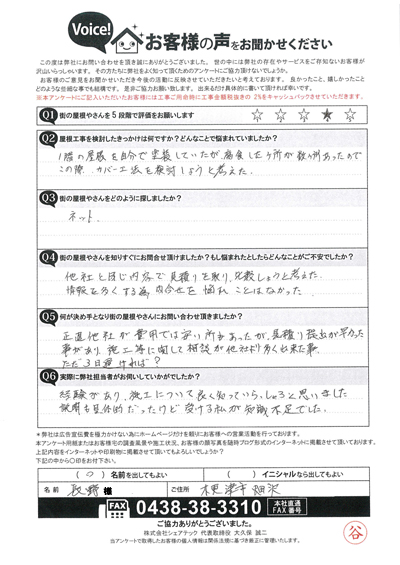 Voice!
お客様の声をお聞かせください
この度は弊社にお問い合わせ頂き誠にありがとうございました。世の中には弊社の存在やサービスをご存知ないお客様が
沢山いらっしゃいます。その方たちに弊社をよく知って頂くためのアンケートにご協力頂けないでしょうか。
お客様のご意見をお聞かせいただき今後の活動に反映させていただきたいと考えております。良かったこと、嬉しかったこと
どのような些細な事でも結構です。是非ご協力お願い致します。出来るだけ具体的に書いて頂ければ幸いです。
※本アンケートにご記入いただいたお客様には工事ご用命時に工事金額税抜きの 2%をキャッシュバックさせていただきます。
Q1 街の屋根やさんを5段階で評価をお願いします
☆ ☆ ☆ ★ ☆
Q2 屋根工事を検討したきっかけは何ですか？どんなことで悩まれていましたか？
1階の屋根を自分で塗装していたが、腐食した箇所が数ヶ所あったので
この際、カバー工法を検討しようと考えた。
Q3 街の屋根やさんをどのように探しましたか？
ネット
Q4 街の屋根やさんを知りすぐにお問合せ頂けましたか？もし悩まれたとしたらどんなことがご不安でしたか？
他社と同じ内容で見積りを取り、比較しようと考えた。
情報を多くする為、問合せを悩むことはなかった。
Q5 何が決め手となり街の屋根やさんにお問い合わせ頂きましたか？
正直他社が費用では安い所もあったが、見積り提出が早かった
事があり、施工等に関して相談が他社より多く出来た事。
ただ3日遅ければ？
Q6 実際に弊社担当者がお伺いしていかがでしたか？
経験があり、施工について良く知っていらっしゃると思いました
説明も具体的だったけど受ける私が知識不足でした。
＊弊社は広告宣伝費を極力かけない為にホームページだけを頼りにお客様への営業活動を行っております。
本アンケート用紙またはお客様宅の調査風景や施工状況、お客様の顔写真を随時ブログ形式のインターネットに掲載させて頂いております。
上記内容をインターネットや印刷物に掲載させて頂いてもよろしいでしょうか？
下記の中から○印をお付下さい。
(○) 名前を出してもよい ( ) イニシャルなら出してもよい
名前 長野 様 ご住所 木更津市畑沢
FAX 0438-38-3310 本社直通 FAX番号
ご協力ありがとうございました。
株式会社シェアテック 代表取締役 大久保 誠二
当アンケートで取得したお客様の個人情報は関係法規に基づき厳正に管理いたします。
谷